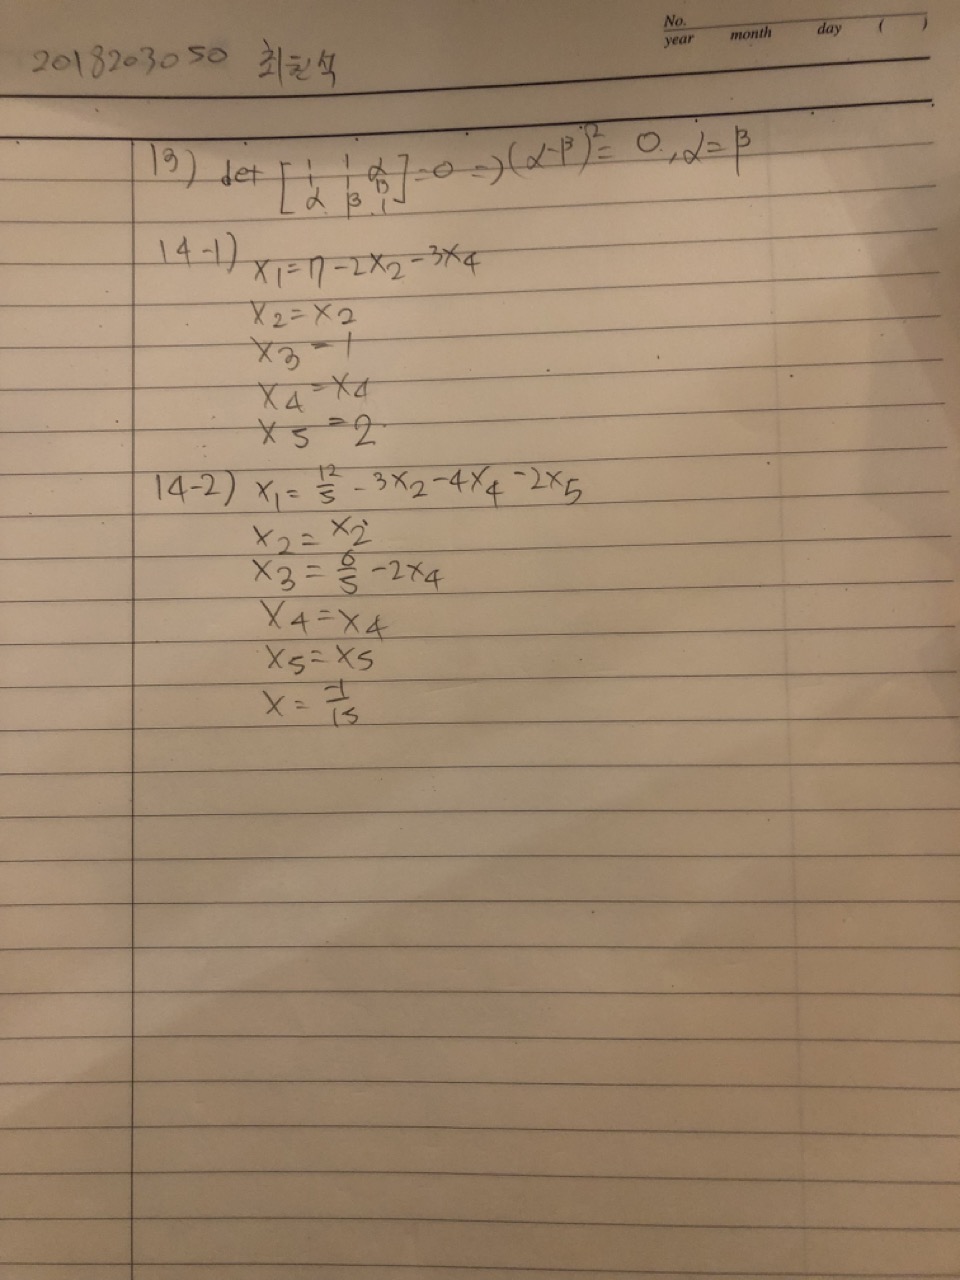 No.
year month day ( )
2018203050 최현석
13) det [1 1 α
1 1 β
α β 1] = 0 => (α-β)² = 0, α = β
14-1) x₁ = 7 - 2x₂ - 3x₄
x₂ = x₂
x₃ = 1
x₄ = x₄
x₅ = 2
14-2) x₁ = 12/5 - 3x₂ - 4x₄ - 2x₅
x₂ = x₂
x₃ = 6/5 - 2x₄
x₄ = x₄
x₅ = x₅
x = -1/15